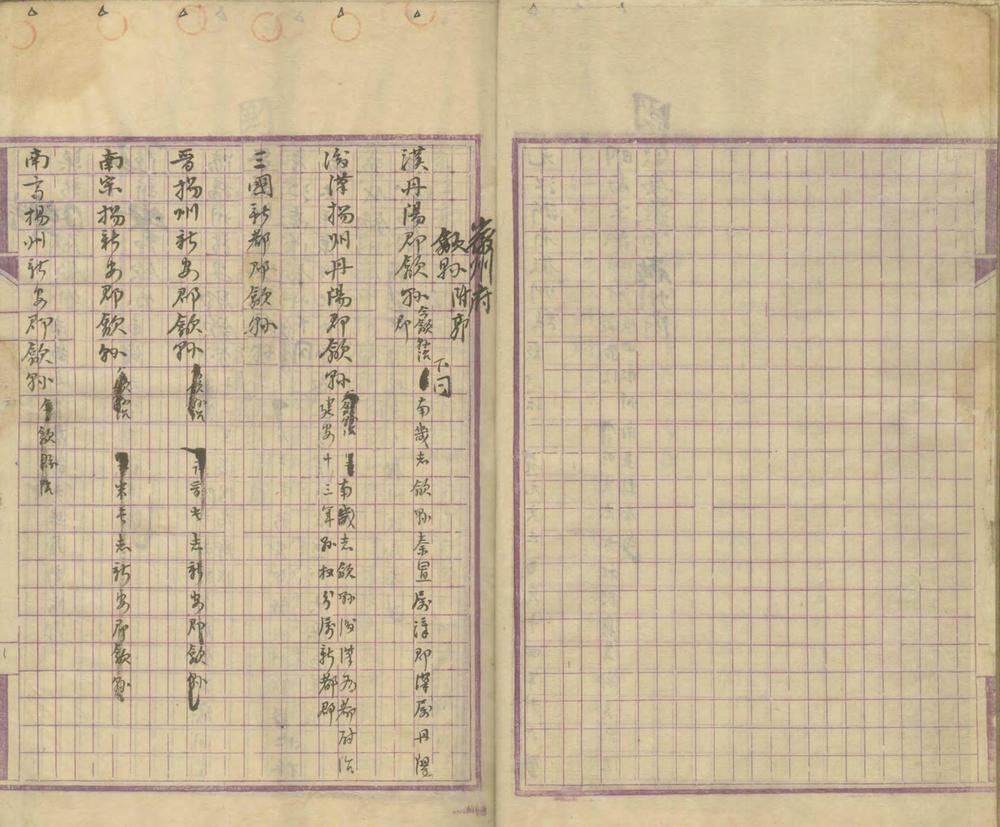 徽州府
歙縣 附郭
漢丹陽郡歙縣 今歙縣治 下同 南畿志歙縣秦置屬漳郡漢屬丹陽
郡
後漢揚州丹陽郡歙縣 南畿志歙縣後漢為都尉治
建安十三年孫权分屬新都郡
三國新都郡歙縣
晉揚州新安郡歙縣 晉書志新安郡歙縣
南宋揚新安郡歙縣 宋書志新安郡歙
南齊揚州新安郡歙縣 今歙縣治